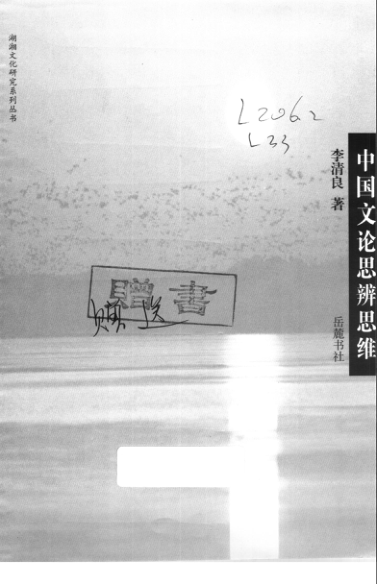 湖湘文化研究系列丛书
L206.2
L33
李清良 著
中国文论思辨思维
赠書
赠送
岳麓书社